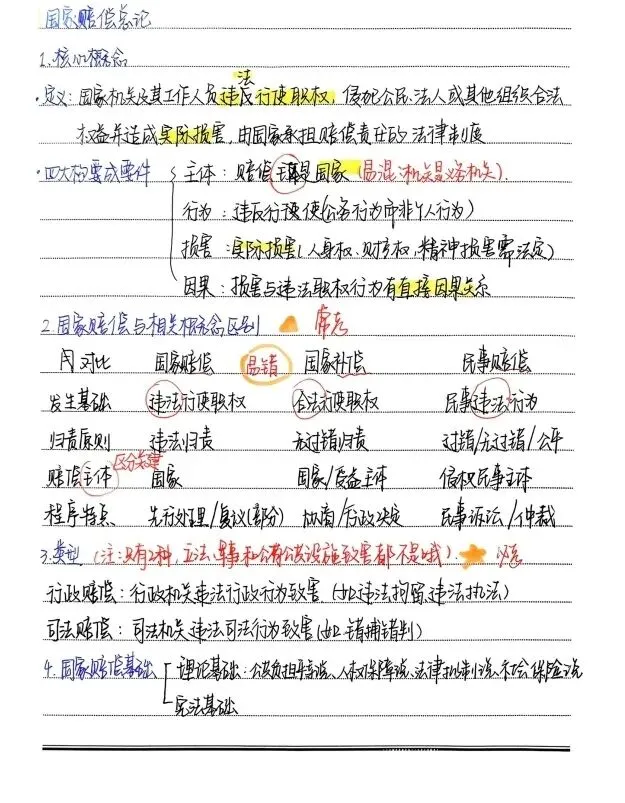 国家赔偿总记
1.核心概念
·定义：国家机关及其工作人员违反法行使职权，侵犯公民、法人或其他组织合法
权益并造成实际损害，由国家承担赔偿责任的法律制度
·四大构成要件 主体：赔偿主体是国家（易混：机关是义务机关）．
行为：违反行使（公务行为而非个人行为）
损害：实际损害（人身权、财产权，精神损害需法定）
因果：损害与违法职权行为有直接因果关系
2.国家赔偿与相关概念区别 常考
对比 国家赔偿 易错 国家补偿 民事赔偿
发生基础 违法行使职权 合法行使职权 民事违法行为
归责原则 违法归责 无过错归责 过错/无过错/公平
赔偿主体 区分关键 国家 国家/受益主体 侵权民事主体
程序特点 先行处理/复议(部分) 协商/行政决定 民事诉讼/仲裁
3.类型（注：只有2种，立法、军事和公有公设施致害都不是哦）． 必考
行政赔偿：行政机关违法行政行为致害．（如违法拘留、违法执法）
司法赔偿：司法机关违法司法行为致害（如错捕错判）
4.国家赔偿基础 理论基础：公负担平等说、人权保障说、法律拟制说、社会保险说
宪法基础